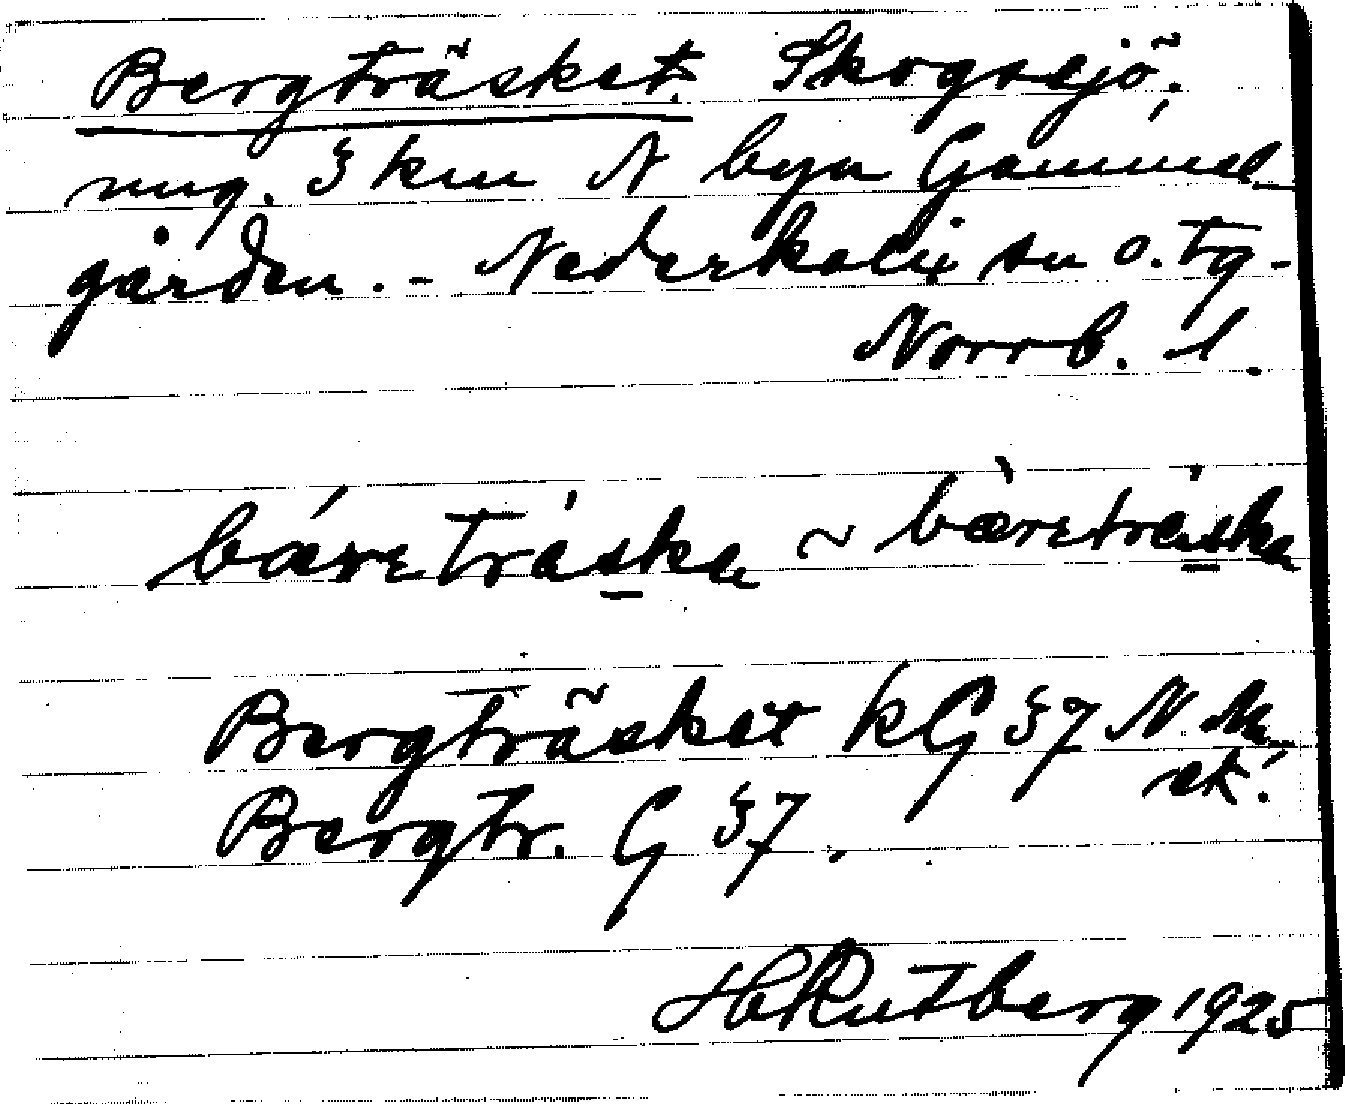 Bergträsket. Skogssjö,
ung. 3 km N byn Gammel
gården. - Nederkalix sn o. tg -
Norrb. l.
bǽretráska ~ bæ̀retràska
Bergträsket kG 37 N.
ek!
Bergtr. G 37.
H Rutberg 1925